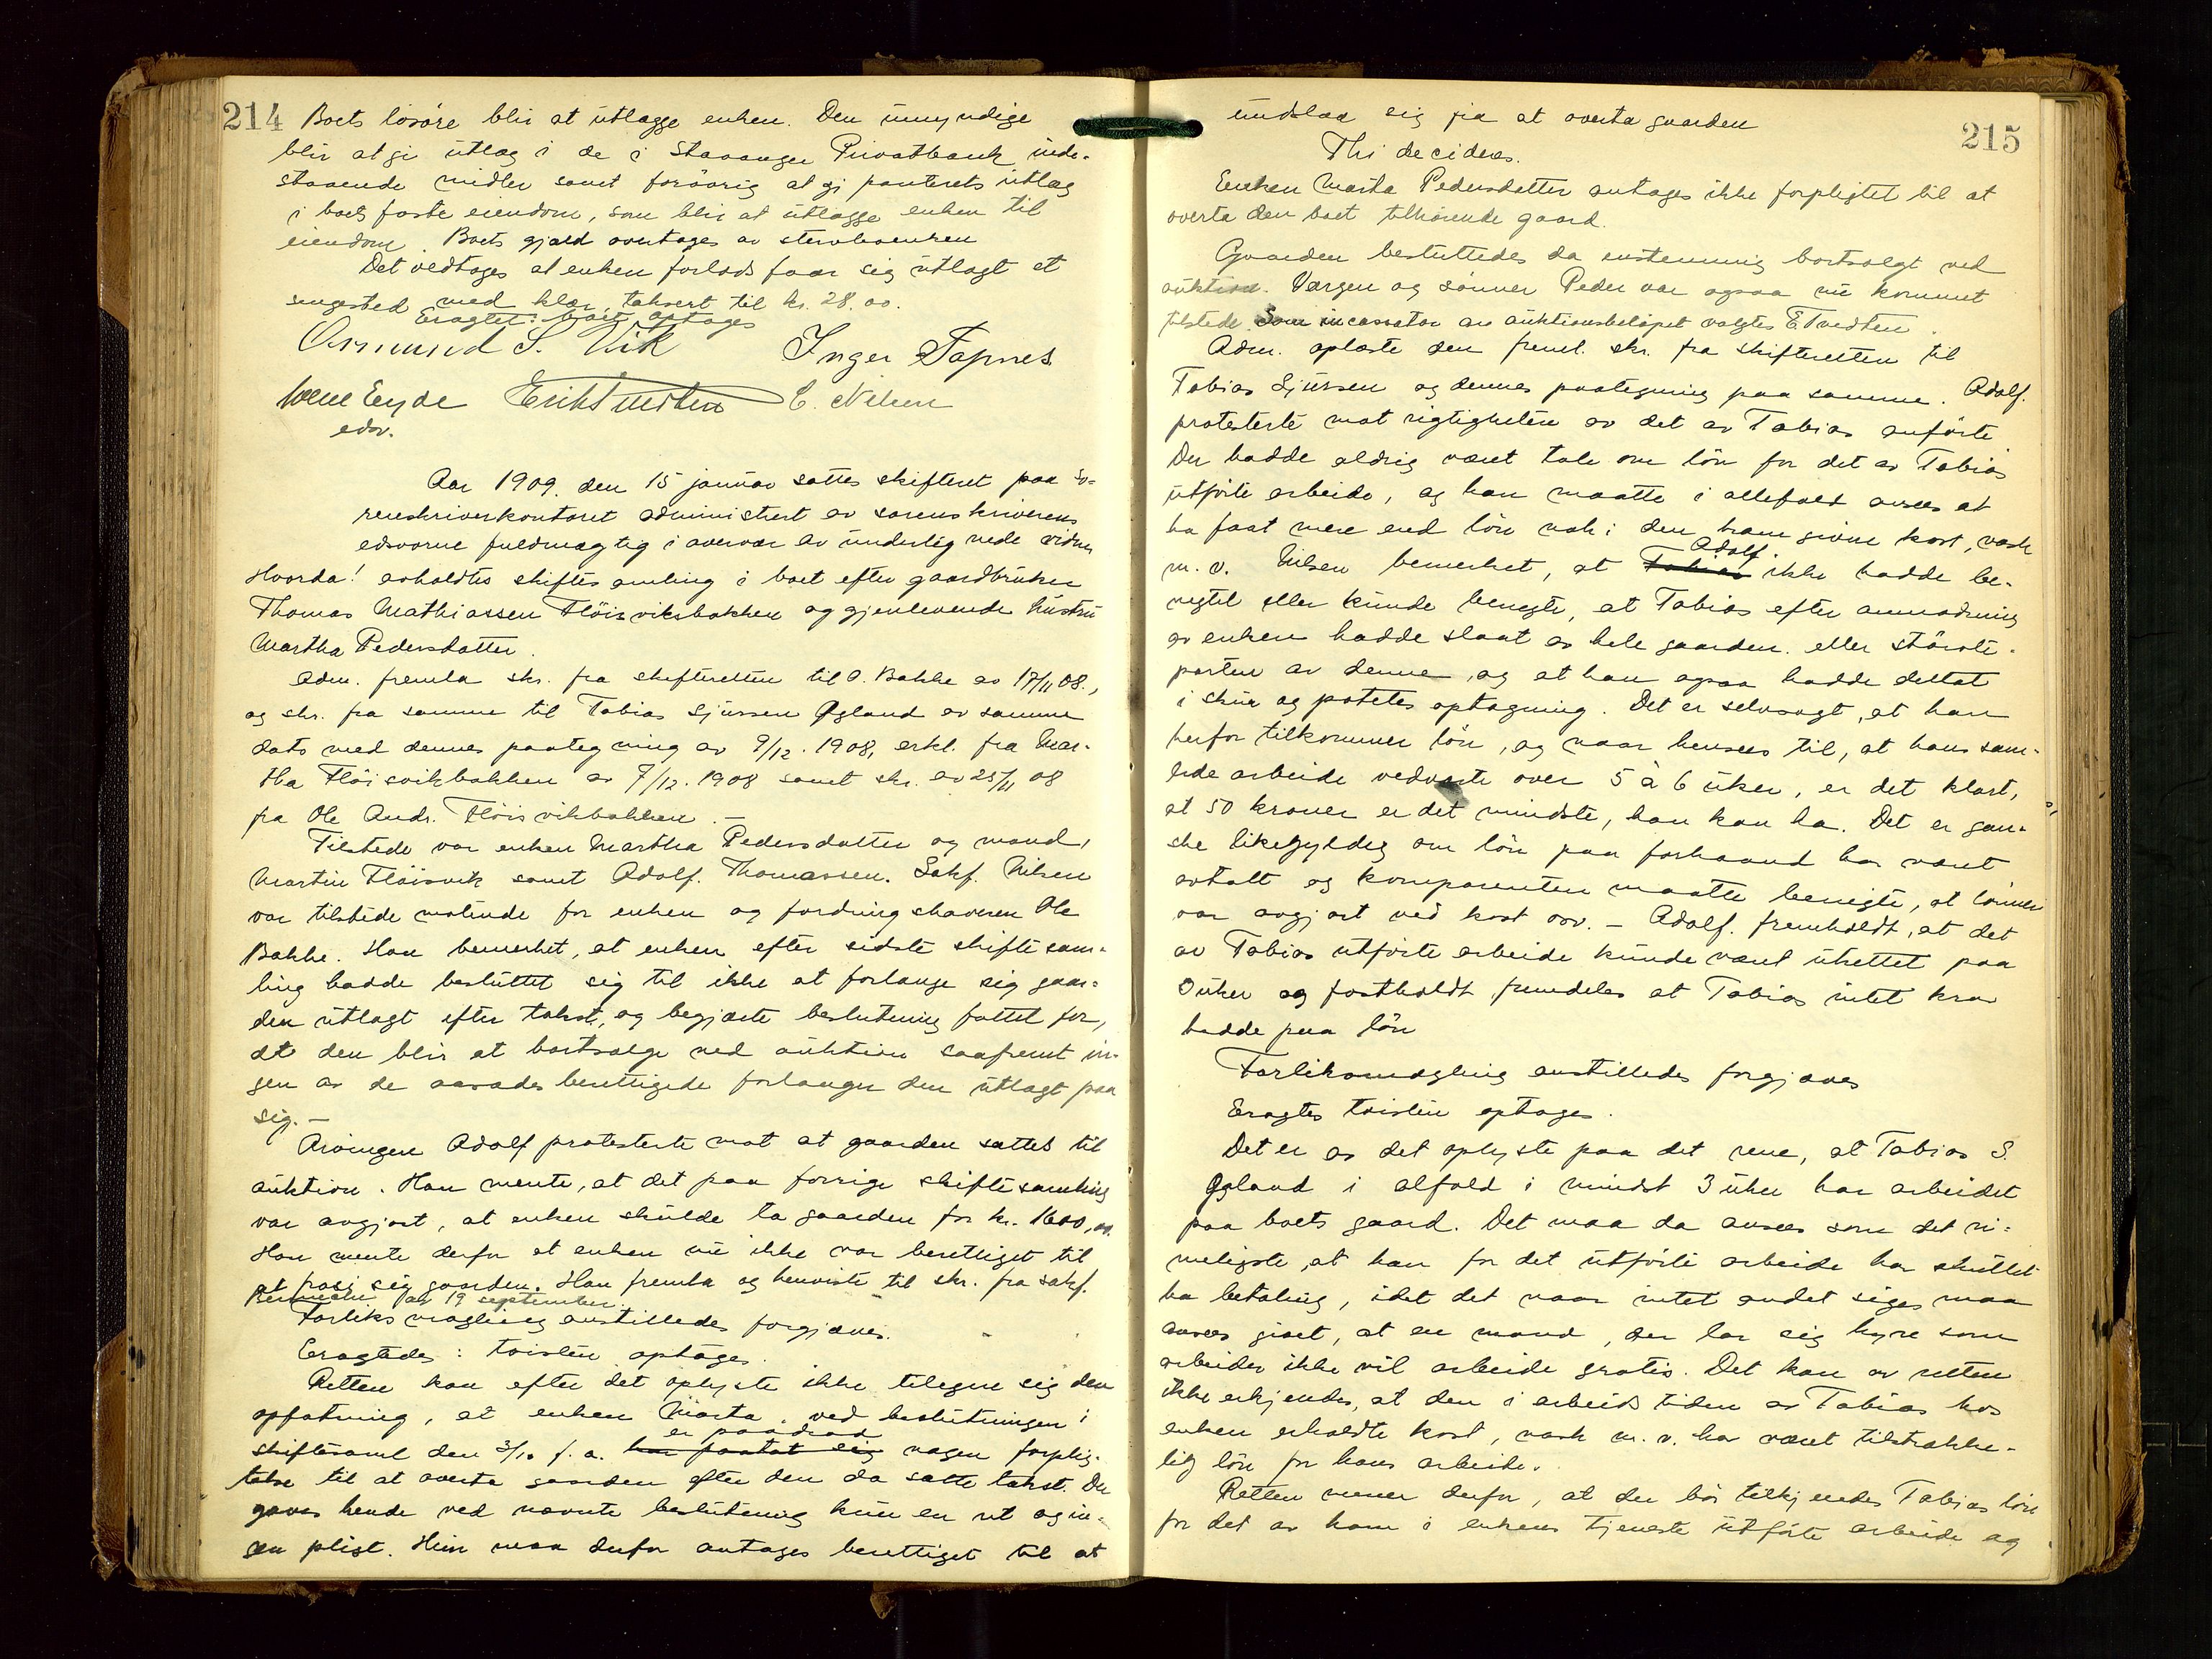 214 Boets løsøre blir at utlægge enken. Den umyndige
blir at gi utlæg i de i Stavanger Privatbank inde-
staaende midler samt forøvrig at gi panterets utlæg
i boets faste eiendom, som blir at utlægge enken til
eiendom. Boets gjæld overtages av stervboenken
Det vedtages at enken forlods faar sig utlagt et
sengested med klær, taksert til kr. 28.00.
Eragtet: boet optages
Osmund S. Vik Inger Topnes
Erik Tvedten E. Nilsen
edsv.
Aar 1909. den 15 januar sattes skifteret paa So-
renskriverkontoret administrert av sorenskriverens
edsvorne fuldmægtig i overvær av underteg nede vidner
Hvorda! avholdtes skiftesamling i boet efter gaardbruker
Thomas Mathiassen Fløisviksbakken og gjenlevende hustru
Martha Pedersdatter.
Adm. fremla skr. fra skifteretten til O. Bakke av 17/11 08.,
og skr. fra samme til Tobias Sjursen Øgland av samme
dato med dennes paategning av 9/12. 1908, erkl. fra Mar-
tha Fløisvikbakken av 7/12. 1908 samt skr. av 25/11 08
fra Ole Andr. Fløisvikbakken. —
Tilstede var enken Martha Pedersdatter og mand,
Martin Fløisvik samt Adolf. Thomassen. Sakf. Nilsen
var tilstede møtende for enken og fordringshaveren Ole
Bakke. Han bemerket, at enken efter sidste skiftesam-
ling hadde besluttet sig til ikke at forlange sig gaar-
den utlagt efter takst, og begjærte beslutning fattet for,
at den blir at bortsælge ved auktion saafremt in-
gen av de aasædesberettigede forlanger den utlagt paa
sig. —
Arvingen Adolf protesterte mot at gaarden sattes til
auktion. Han mente, at det paa forrige skiftesamling
var avgjort, at enken skulde ta gaarden for kr. 1600,00.
Han mente derfor at enken nu ikke var berettiget til
at frasi sig gaarden. Han fremla og henviste til skr. fra sakf.
av 19 september.
Forliksmægling anstilledes forgjæves.
Eragtedes: tvisten optages.
Retten kan efter det oplyste ikke tilegne sig den
opfatning, at enken Marta ved beslutningen i
er paadrat
skiftesaml den 3/10 f. a. har paatat sig nogen forplig-
telse til at overta gaarden efter den da satte takst. Der
gaves hende ved nævnte beslutning kun en ret og in-
gen pligt. Hun maa derfor antages berettiget til at
215
undslaa sig fra at overta gaarden
Thi decideres.
Enken Marta Pedersdatter antages ikke forpligtet til at
overta den boet tilhørende gaard.
Gaarden besluttedes da enstemmig bortsolgt ved
auktion. Værgen og sønnen Peder var ogsaa nu kommet
tilstede. Som incassator av auktionsbeløpet valgtes E. Tvedten.
Adm. oplæste den freml. skr. fra skifteretten til
Tobias Sjursen og dennes paategning paa samme. Adolf.
protesterte mot rigtigheten av det av Tobias anførte
Der hadde aldrig været tale om løn for det av Tobias
utførte arbeide, og han maatte i allefald ansees at
ha faat mere end løn nok i den ham givne kost, vask
Adolf
m. v. Nilsen bemerket, at Tobias ikke hadde be-
negtet eller kunde benegte, at Tobias efter anmodning
av enken hadde slaat av hele gaarden eller største-
parten av denne, og at han ogsaa hadde deltat
i skur og potetes optagning. Det er selvsagt, at han
herfor tilkommer løn, og naar hensees til, at hans sam-
lede arbeide vedvarte over 5 à 6 uker, er det klart,
at 50 kroner er det mindste, han kan ha. Det er gan-
ske likegyldig om løn paa forhaand har været
avtalt og komparenten maatte benegte, at lønnen
var avgjort ved kost osv. — Adolf. fremholdt, at det
av Tobias utførte arbeide kunde været utrettet paa
3 uker og fastholdt fremdeles at Tobias intet krav
hadde paa løn
Forliksmægling anstilledes forgjæves
Eragtes tvisten optages.
Det er av det oplyste paa det rene, at Tobias S.
Øgland i alfald i mindst 3 uker har arbeidet
paa boets gaard. Det maa da ansees som det ri-
meligste, at han for det utførte arbeide har skullet
ha betaling, idet det naar intet andet siges maa
ansees givet, at en mand, der lar sig hyre som
arbeider ikke vil arbeide gratis. Det kan av retten
ikke erkjendes, at den i arbeidstiden av Tobias hos
enken erholdte kost, vask m. v. har været tilstrække-
lig løn for hans arbeide.
Retten mener derfor, at der bør tilkjendes Tobias løn
for det av ham i enkens tjeneste utførte arbeide og